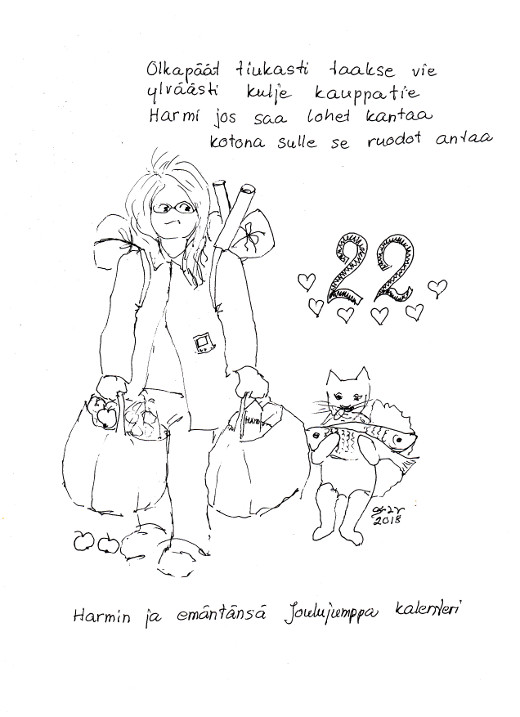 Olkapäät tiukasti taakse vie
ylväästi kulje kauppatie
Harmi jos saa lohet kantaa
kotona sulle se ruodot antaa
22
2018
Harmin ja emäntänsä Joulujumppa kalenteri